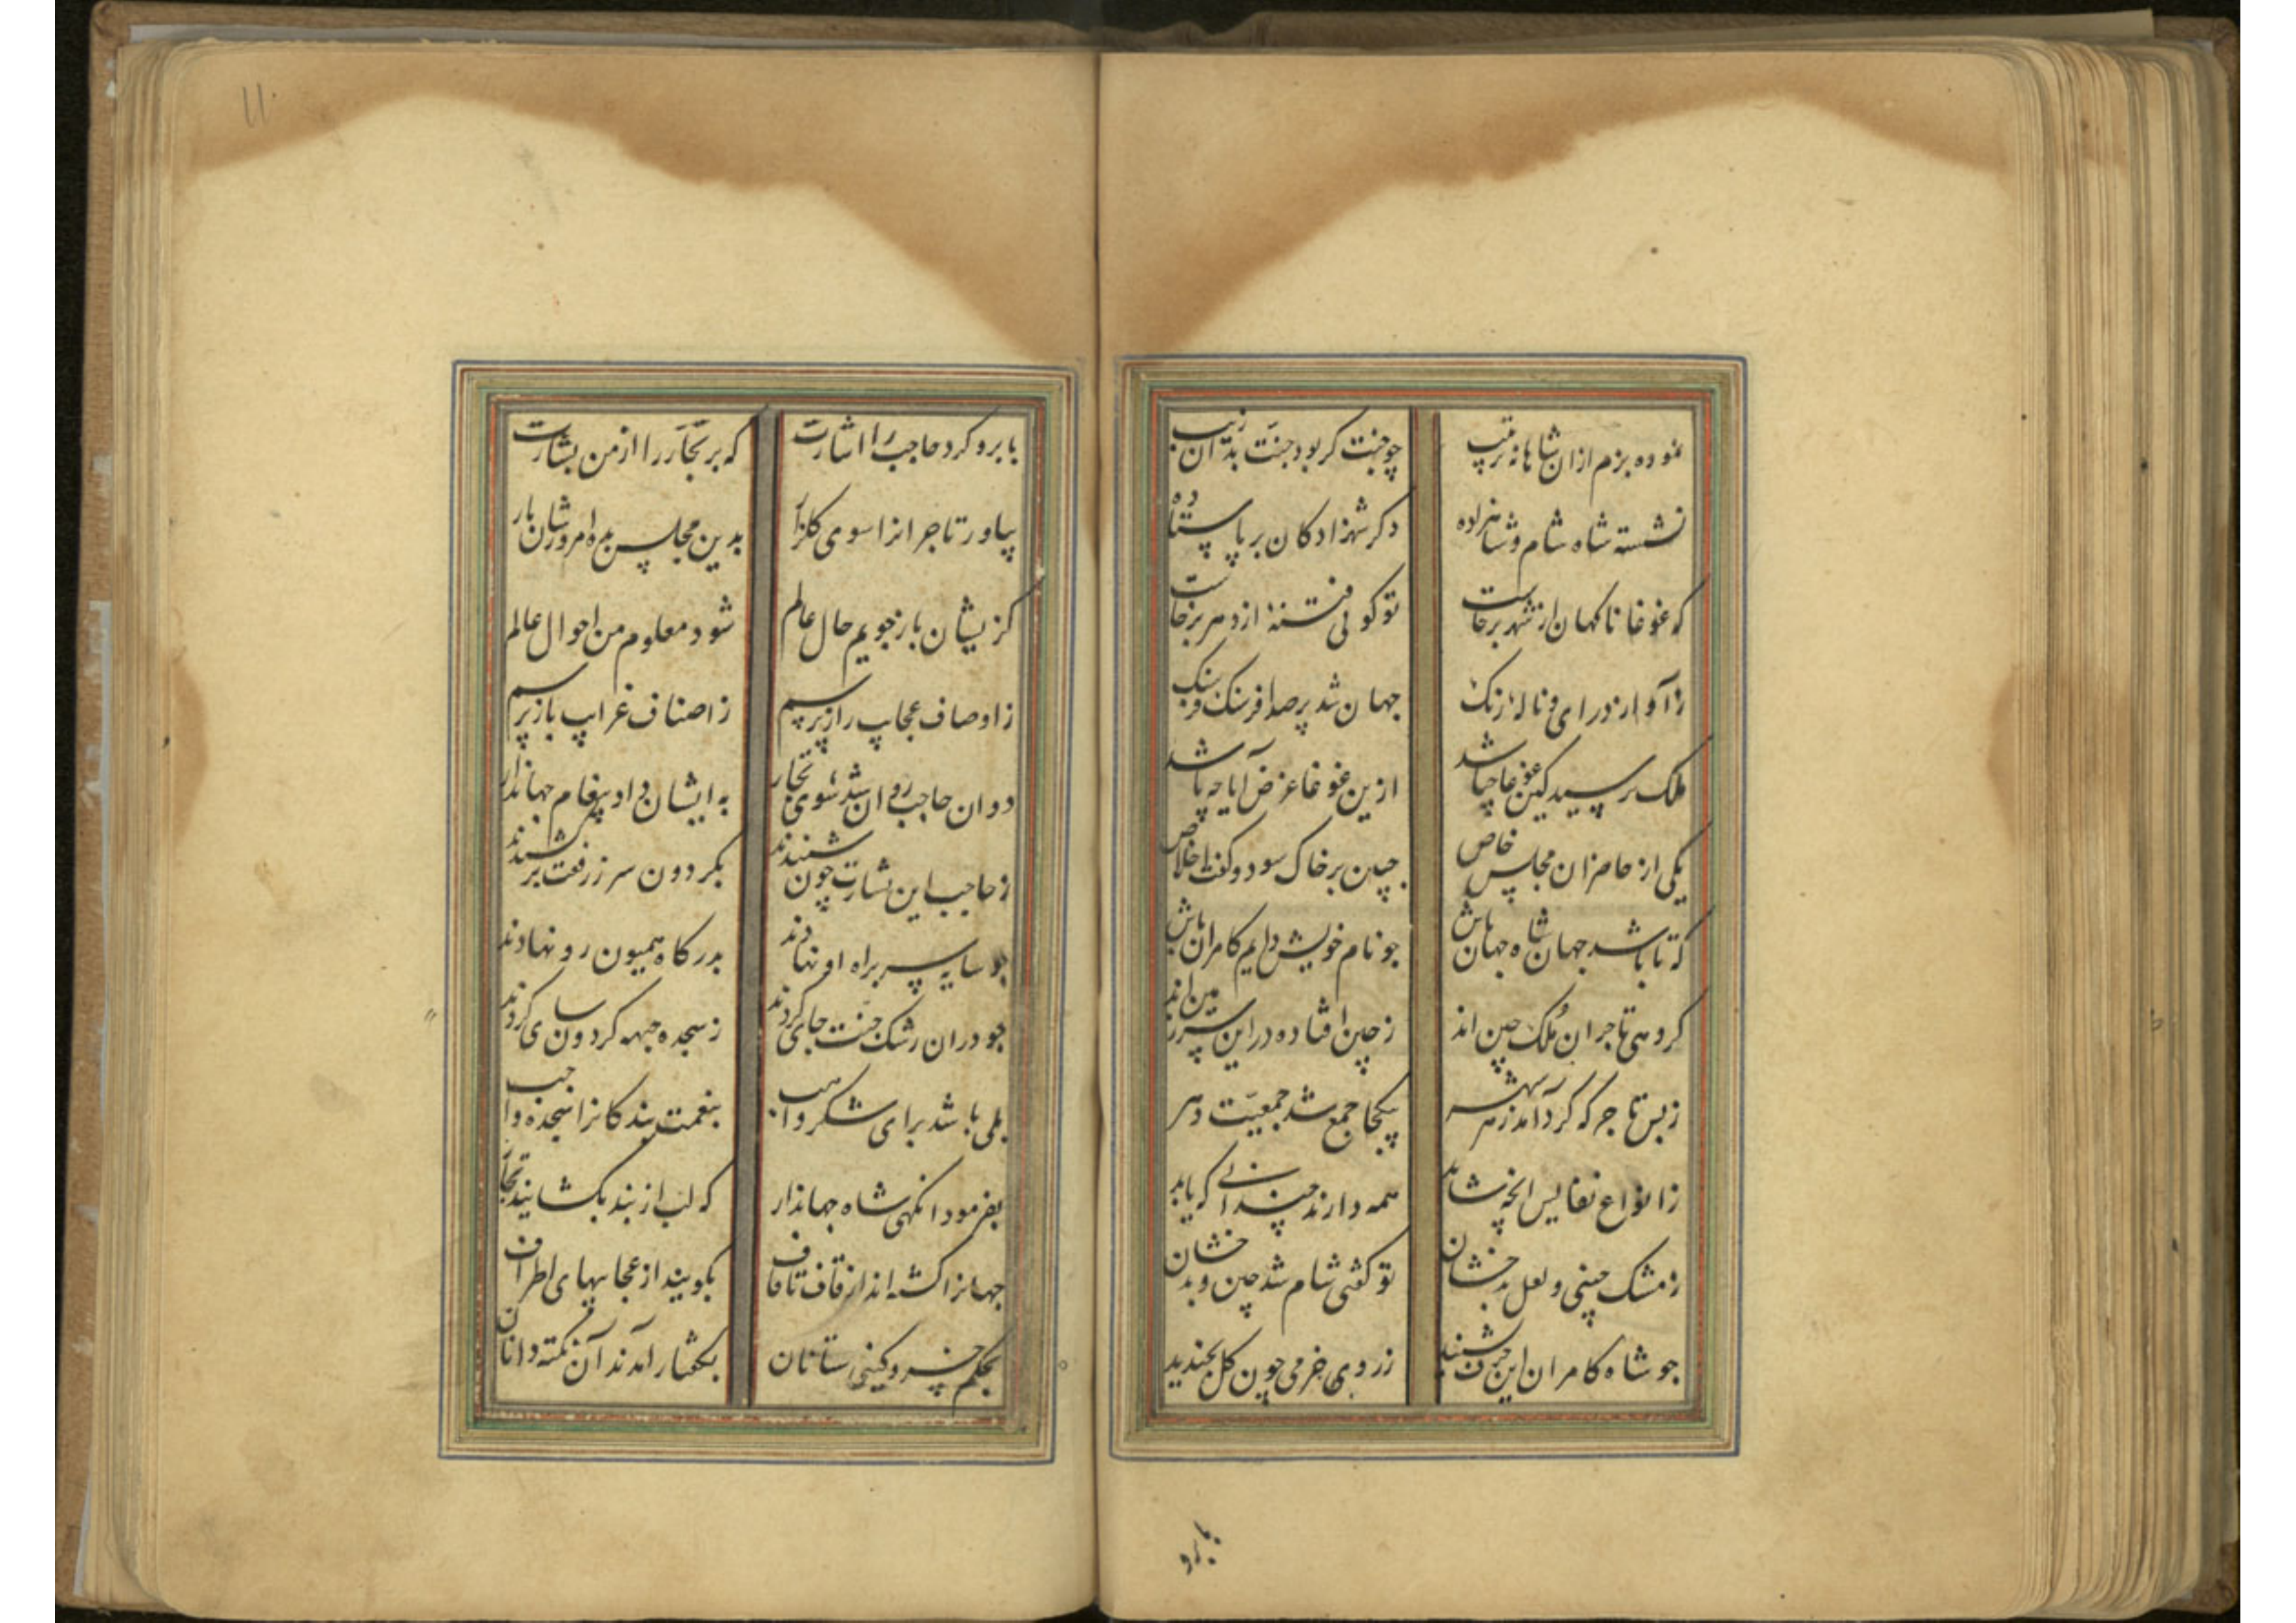 نموده بزم ازان شاهانه ترتیب چو جنت کر بود جنت بدان زیب
نشسته شاه شام و شاهزاده دکر شهزادکان برپا ستاده
که غوغا ناکهان از شهر برخاست تو کوئی فتنهٔ از دهر برخاست
ز آواز درای و نالهٔ زنک جهان شد پر صدا فرسنک فرسنک
ملک پرسید کین غوغا چه باشد ازین غوغا غرض آیا چه باشد
یکی از حاضران مجلس خاص جبین بر خاک سود و کفت اخلاص
که تا باشد جهان شاه جهان باش چو نام خویش دایم کامران باش
کروهی تاجران ملک چین اند ز چین افتاده در این سرزمین اند
ز بس تاجر که کرد آمد ز هر شهر بیکجا جمع شد جمعیت دهر
ز انواع نفایس انچه شاید همه دارند چندانی که باید
ز مشک چینی و لعل بدخشان تو کفتی شام شد چین و بدخشان
چو شاه کامران این حرف بشنید ز روی خرمی چون کل بخندید
بابرو
۱۱
بابرو کرد حاجب را اشارت که بر تجار را از من بشارت
بیاور تاجرانرا سوی کلزار بدین مجلس بده امروزشان بار
کزیشان بازجویم حال عالم شود معلوم من احوال عالم
ز اوصاف عجایب راز پرسم ز اصناف غرایب باز پرسم
دوان حاجب روان شد سوی تجار به ایشان داد پیغام جهاندار
ز حاجب این بشارت چون شنیدند بکردون سر ز رفعت برکشیدند
چو سایه سر براه او نهادند بدرکاه همیون رو نهادند
چو دران رشک جنت جای کردند ز سجده جبهه کردون سای کردند
بلی باشد برای شکر واهب بنعمت بندکانرا سجده واجب
بفرمود انکهی شاه جهاندار که لب از بند بکشایند تجار
جهانرا کشته اند از قاف تا قاف بکویند از عجایبهای اطراف
بحکم خسرو کیتی ستانان بکفتار آمدند آن نکته دانان